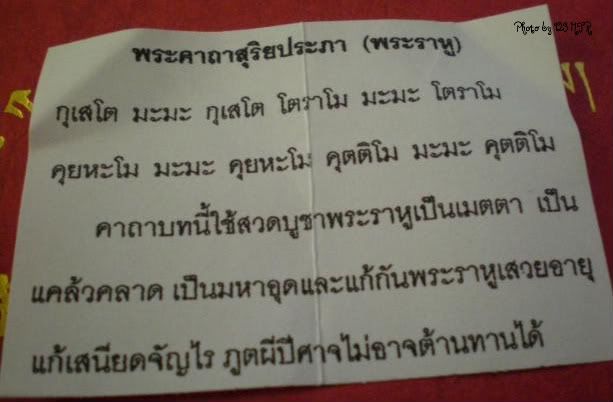 Photo by 123 MFR
พระคาถาสุริยประภา (พระราหู)
กุเสโต มะมะ กุเสโต โตราโม มะมะ โตราโม
คุยหะโม มะมะ คุยหะโม คุตติโม มะมะ คุตติโม
คาถาบทนี้ใช้สวดบูชาพระราหูเป็นเมตตา เป็น
แคล้วคลาด เป็นมหาอุดและแก้กันพระราหูเสวยอายุ
แก้เสนียดจัญไร ภูตผีปีศาจไม่อาจต้านทานได้